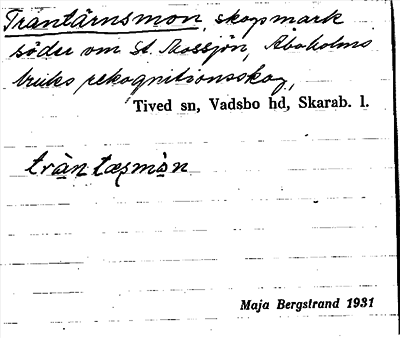 Trantärnsmon, skogsmark
söder om St. Mossjön, Aboholms
bruks rekognitionsskog,
Tived sn, Vadsbo hd, Skarab. l.
tràntæṣmòn
Maja Bergstrand 1931